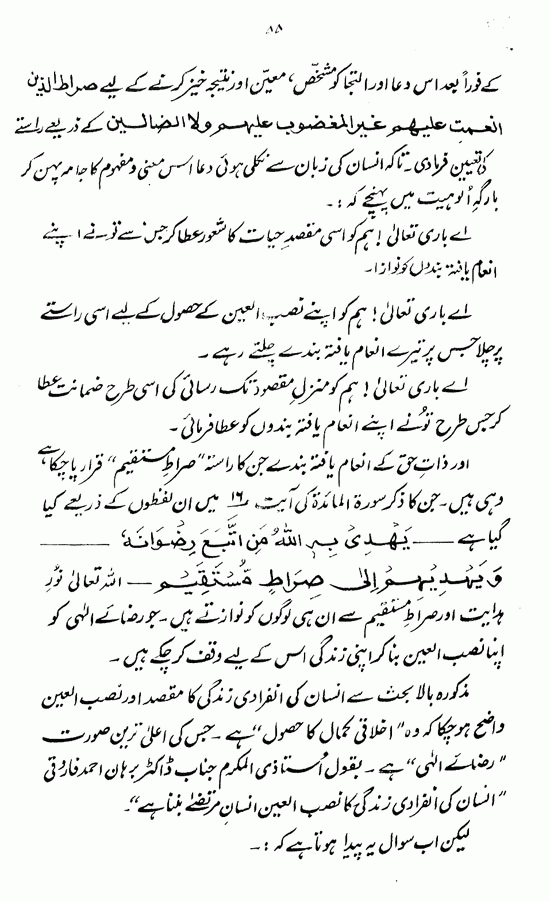 ۸۵
کے فوراً بعد اس دعا اور التجا کو مشخّص، معیّن اور نتیجہ خیز کرنے کے لیے صراط الذین
انعمت علیہم غیر المغضوب علیہم ولا الضالین کے ذریعے راستے
کی تعیین فرما دی۔ تاکہ انسان کی زبان سے نکلی ہوئی دعا اسس معنی و مفہوم کا جامہ پہن کر
بارگہِ اُلوہیت میں پہنچے کہ :۔
اے باری تعالیٰ! ہم کو اسی مقصدِ حیات کا شعور عطا کر جس سے تو نے اپنے
انعام یافتہ بندوں کو نوازا۔
اے باری تعالیٰ! ہم کو اپنے نصب العین کے حصول کے لیے اسی راستے
پر چلا جس پر تیرے انعام یافتہ بندے چلتے رہے۔
اے باری تعالیٰ! ہم کو منزلِ مقصود تک رسائی کی اسی طرح ضمانت عطا
کر جس طرح تُو نے اپنے انعام یافتہ بندوں کو عطا فرمائی۔
اور ذاتِ حق کے انعام یافتہ بندے جن کا راستہ "صراطِ مستقیم" قرار پا چکا ہے
وہی ہیں۔ جن کا ذکر سورۃ المائدۃ کی آیت ۱۶ میں ان لفظوں کے ذریعے کیا
گیا ہے — یَھْدِیْ بِہِ اللہُ مَنِ اتَّبَعَ رِضْوَانَہٗ —
وَیَھْدِیْہِمْ اِلٰی صِرَاطٍ مُّسْتَقِیْمٍ — اللہ تعالیٰ نُورِ
ہدایت اور صراطِ مستقیم سے ان ہی لوگوں کو نوازتے ہیں۔ جو رضائے الٰہی کو
اپنا نصب العین بنا کر اپنی زندگی اس کے لیے وقف کر چکے ہیں۔
مذکورہ بالا بحث سے انسان کی انفرادی زندگی کا مقصد اور نصب العین
واضح ہو چکا کہ وہ "اخلاقی کمال کا حصول" ہے۔ جس کی اعلیٰ ترین صورت
"رضائے الٰہی" ہے۔ بقول اُستاذی المکرم جناب ڈاکٹر برہان احمد فاروقی
"انسان کی انفرادی زندگی کا نصب العین انسانِ مرتضےٰ بننا ہے"۔
لیکن اب سوال یہ پیدا ہوتا ہے کہ :۔